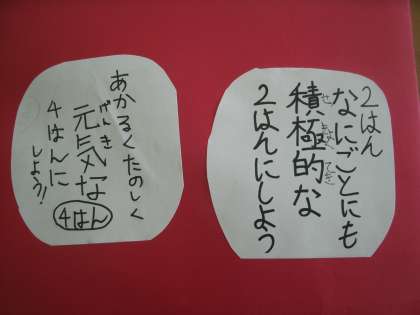 2はん
なにごとにも
積極的な
せっきょくてき
2はんにしよう
あかるくたのしく
元気な
げんき
4はんに
しよう!!
4はん